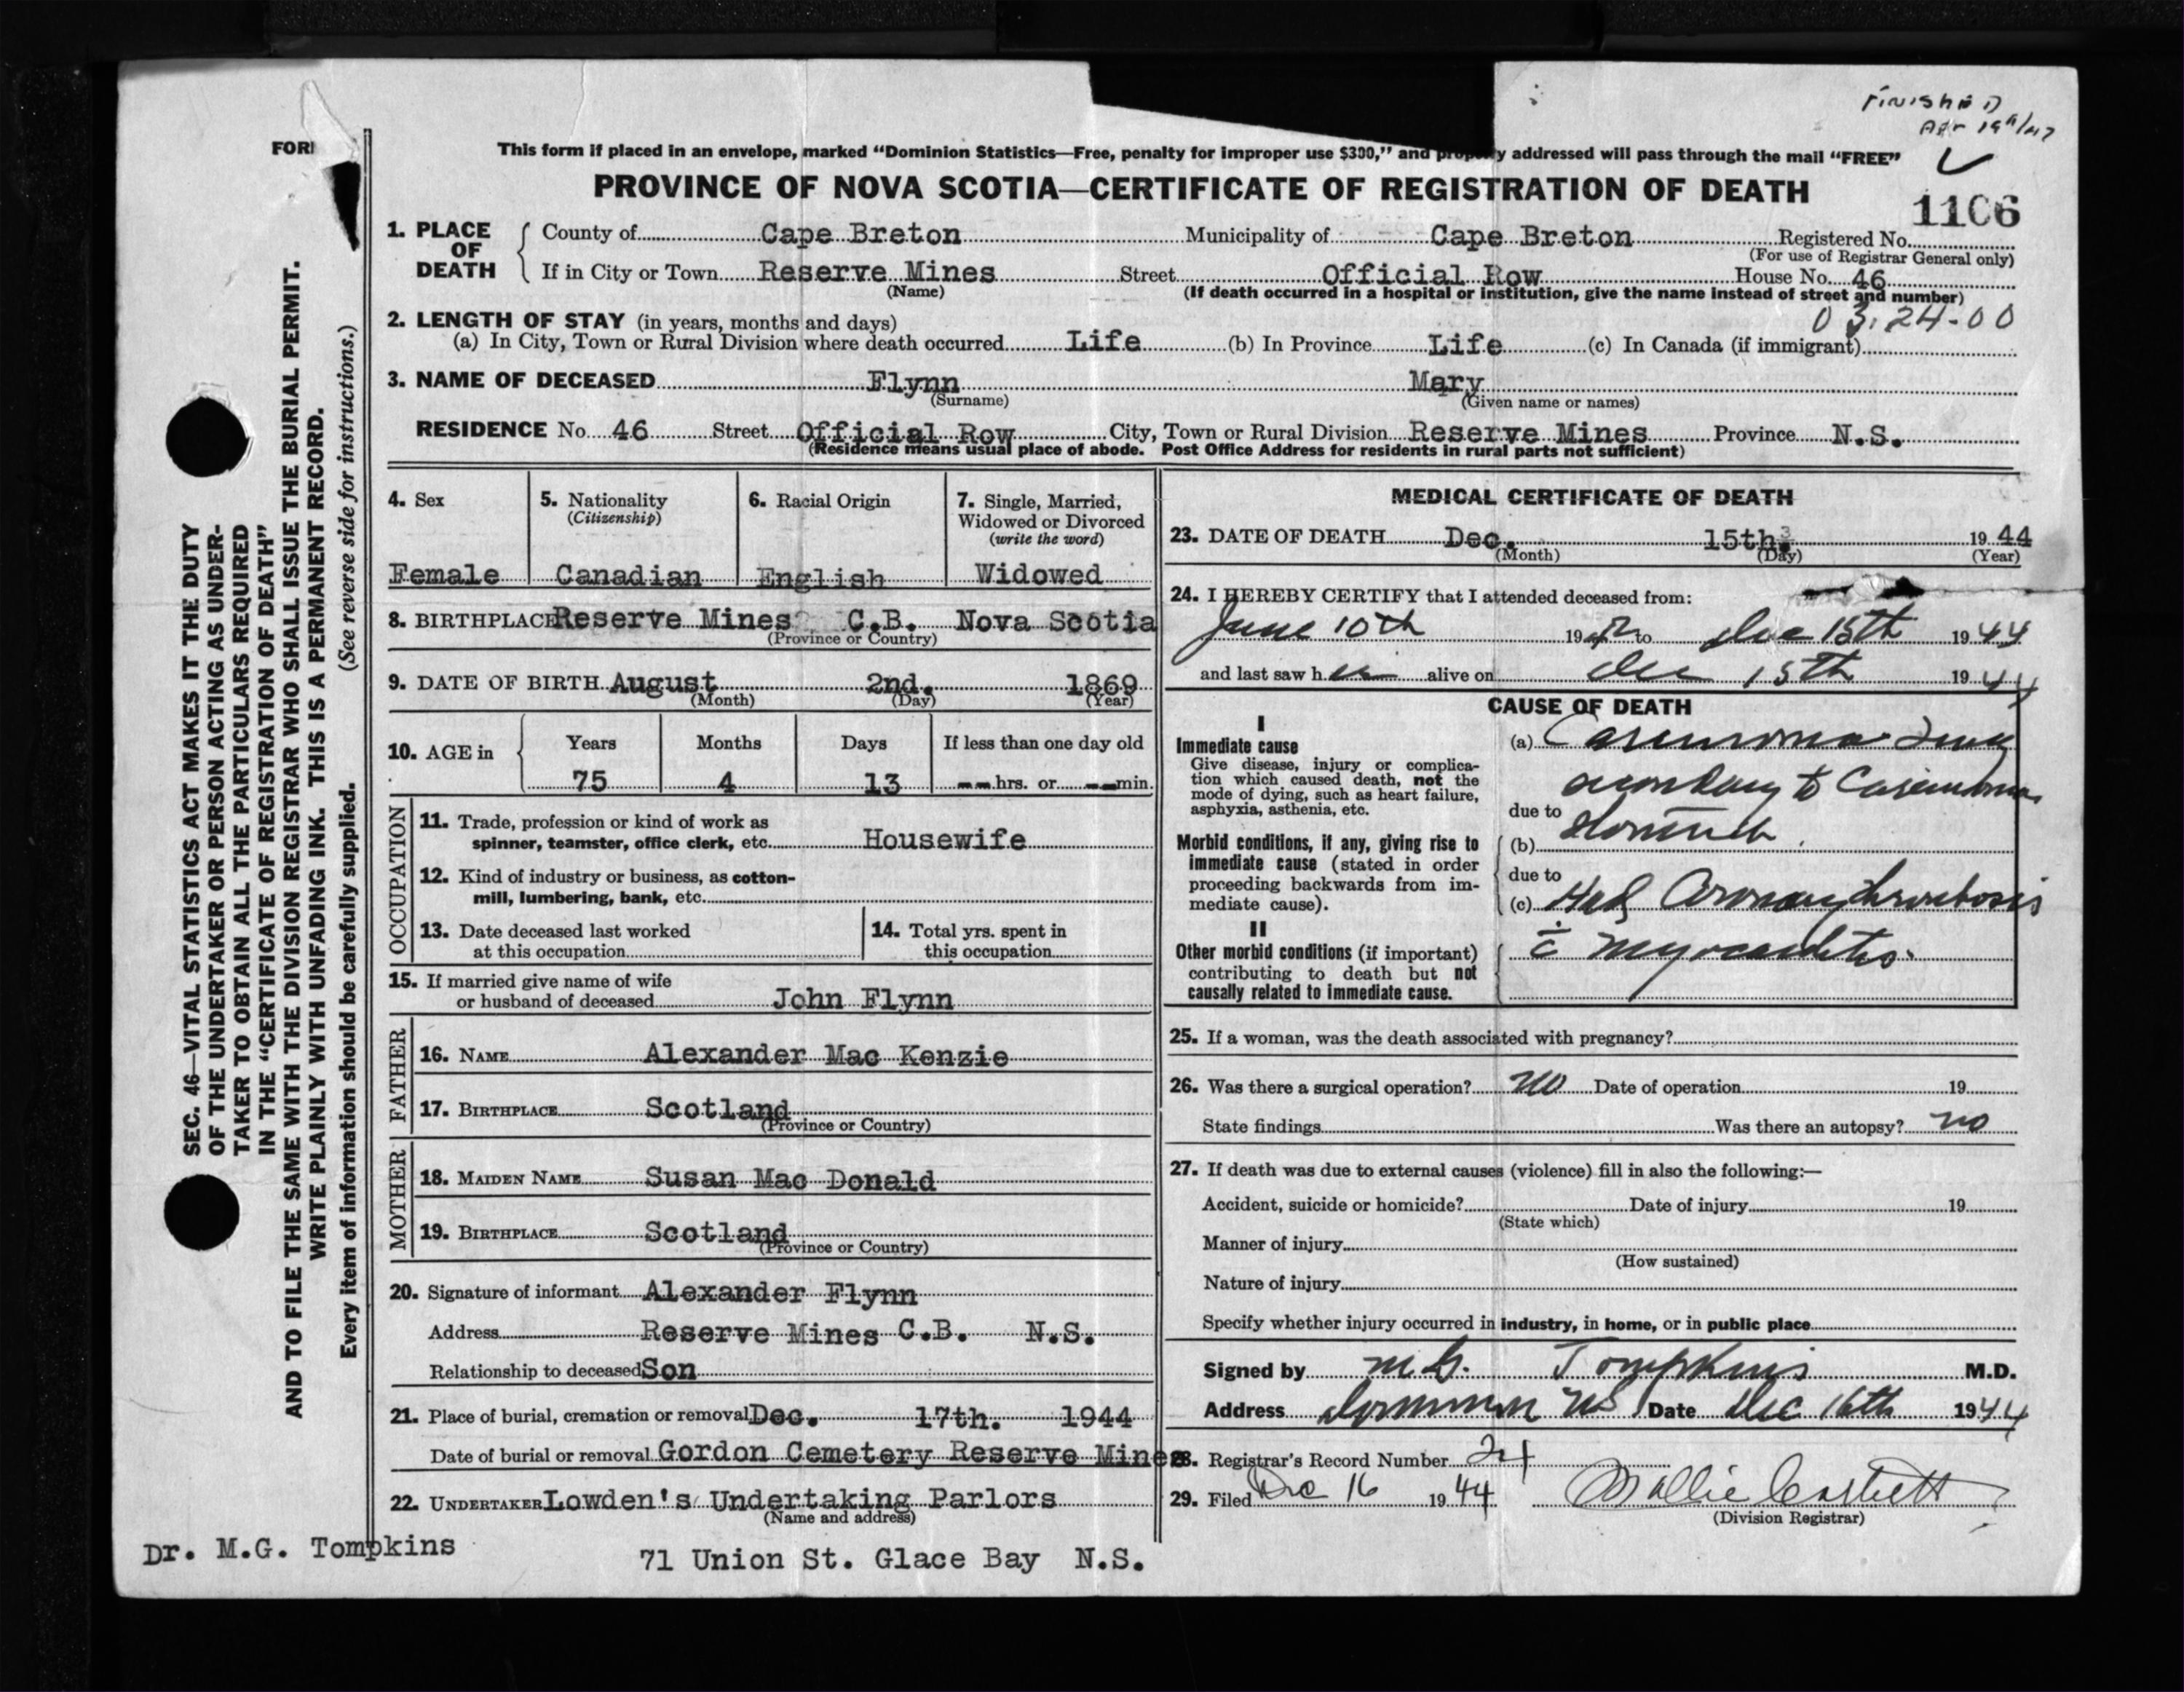 FINISHED
Apr 19th/47
This form if placed in an envelope, marked “Dominion Statistics—Free, penalty for improper use $300,” and y addressed will pass through the mail “FREE”
FOR
PROVINCE OF NOVA SCOTIA—CERTIFICATE OF REGISTRATION OF DEATH
1106
1. PLACE OF DEATH County of Cape Breton Municipality of Cape Breton Registered No.
(For use of Registrar General only)
If in City or Town Reserve Mines Street Official Row House No. 46
(Name) (If death occurred in a hospital or institution, give the name instead of street and number)
03.24-00
2. LENGTH OF STAY (in years, months and days)
(a) In City, Town or Rural Division where death occurred Life (b) In Province Life (c) In Canada (if immigrant)
3. NAME OF DECEASED Flynn Mary
(Surname) (Given name or names)
RESIDENCE No. 46 Street Official Row City, Town or Rural Division Reserve Mines Province N.S.
(Residence means usual place of abode. Post Office Address for residents in rural parts not sufficient)
4. Sex
Female
5. Nationality
(Citizenship)
Canadian
6. Racial Origin
English
7. Single, Married,
Widowed or Divorced
(write the word)
Widowed
8. BIRTHPLACE Reserve Mines C.B. Nova Scotia
(Province or Country)
9. DATE OF BIRTH August 2nd. 1869
(Month) (Day) (Year)
10. AGE in Years Months Days If less than one day old
75 4 13 -- hrs. or -- min.
OCCUPATION
11. Trade, profession or kind of work as
spinner, teamster, office clerk, etc. Housewife
12. Kind of industry or business, as cotton-
mill, lumbering, bank, etc.
13. Date deceased last worked
at this occupation
14. Total yrs. spent in
this occupation
15. If married give name of wife
or husband of deceased John Flynn
FATHER
16. NAME Alexander Mac Kenzie
17. BIRTHPLACE Scotland
(Province or Country)
MOTHER
18. MAIDEN NAME Susan Mac Donald
19. BIRTHPLACE Scotland
(Province or Country)
20. Signature of informant Alexander Flynn
Address Reserve Mines C.B. N.S.
Relationship to deceased Son
21. Place of burial, cremation or removal Dec. 17th. 1944
Date of burial or removal Gordon Cemetery Reserve Mines
22. UNDERTAKER Lowden's Undertaking Parlors
(Name and address)
71 Union St. Glace Bay N.S.
Dr. M.G. Tompkins
MEDICAL CERTIFICATE OF DEATH
23. DATE OF DEATH Dec. 15th. 3 1944
(Month) (Day) (Year)
24. I HEREBY CERTIFY that I attended deceased from:
June 10th 19 to Dec 15th 1944
and last saw her alive on Dec 15th 1944
CAUSE OF DEATH
I
Immediate cause
Give disease, injury or complica-
tion which caused death, not the
mode of dying, such as heart failure,
asphyxia, asthenia, etc.
Morbid conditions, if any, giving rise to
immediate cause (stated in order
proceeding backwards from im-
mediate cause).
II
Other morbid conditions (if important)
contributing to death but not
causally related to immediate cause.
(a) Carcinoma Lung
secondary to Carcinoma
due to Stomach
(b)
due to
(c) Had Coronary thrombosis
c̄ myocarditis
25. If a woman, was the death associated with pregnancy?
26. Was there a surgical operation? no Date of operation 19
State findings Was there an autopsy? no
27. If death was due to external causes (violence) fill in also the following:—
Accident, suicide or homicide? Date of injury 19
(State which)
Manner of injury
(How sustained)
Nature of injury
Specify whether injury occurred in industry, in home, or in public place
Signed by M.G. Tompkins M.D.
Address Dominion NS Date Dec 16th 1944
28. Registrar's Record Number 24
29. Filed Dec 16 1944 Mallie Corbett
(Division Registrar)
SEC. 46—VITAL STATISTICS ACT MAKES IT THE DUTY
OF THE UNDERTAKER OR PERSON ACTING AS UNDER-
TAKER TO OBTAIN ALL THE PARTICULARS REQUIRED
IN THE “CERTIFICATE OF REGISTRATION OF DEATH”
AND TO FILE THE SAME WITH THE DIVISION REGISTRAR WHO SHALL ISSUE THE BURIAL PERMIT.
WRITE PLAINLY WITH UNFADING INK. THIS IS A PERMANENT RECORD.
Every item of information should be carefully supplied. (See reverse side for instructions.)